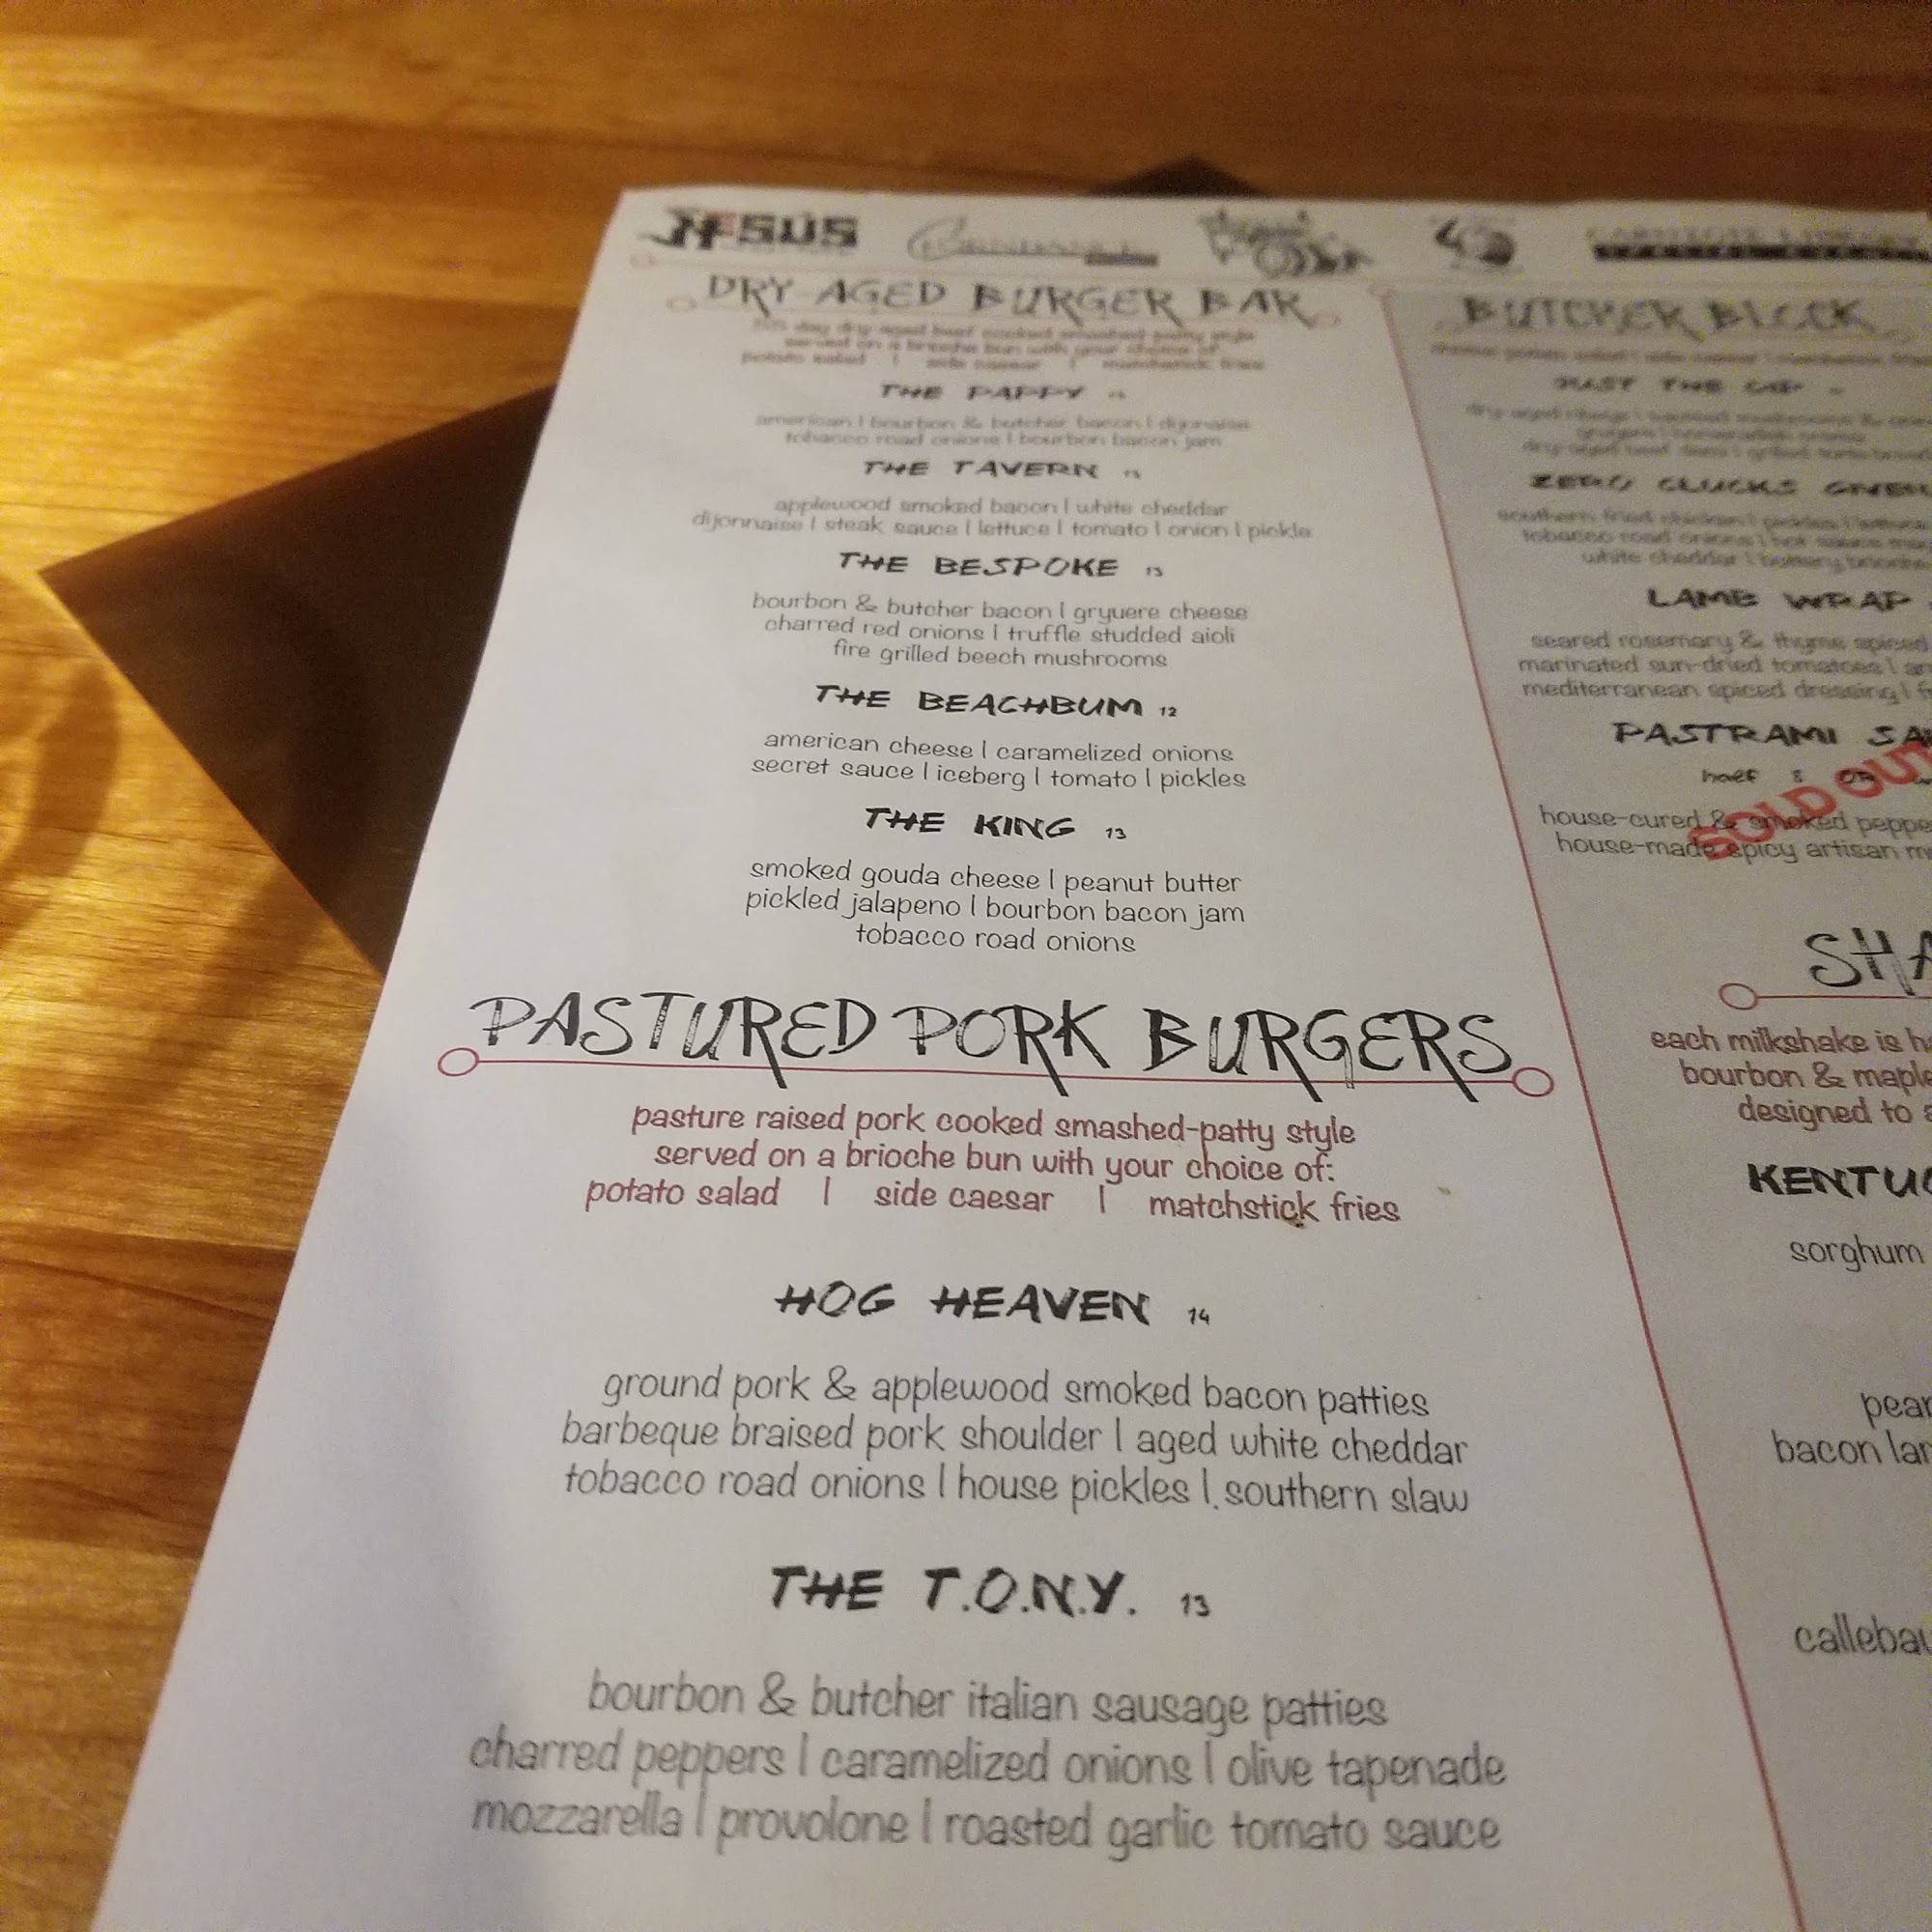 JESUS
DRY-AGED BURGER BAR
day dry aged beef cooked smashed patty style
served on a brioche bun with your choice of
potato salad | side caesar | matchstick fries
THE PAPPY
american | bourbon & butcher bacon | dijonaise
tobacco road onions | bourbon bacon jam
THE TAVERN 13
applewood smoked bacon | white cheddar
dijonnaise | steak sauce | lettuce | tomato | onion | pickle
THE BESPOKE 13
bourbon & butcher bacon | gryuere cheese
charred red onions | truffle studded aioli
fire grilled beech mushrooms
THE BEACHBUM 12
american cheese | caramelized onions
secret sauce | iceberg | tomato | pickles
THE KING 13
smoked gouda cheese | peanut butter
pickled jalapeno | bourbon bacon jam
tobacco road onions
PASTURED PORK BURGERS
pasture raised pork cooked smashed-patty style
served on a brioche bun with your choice of:
potato salad | side caesar | matchstick fries
HOG HEAVEN 14
ground pork & applewood smoked bacon patties
barbeque braised pork shoulder | aged white cheddar
tobacco road onions | house pickles | southern slaw
THE T.O.N.Y. 13
bourbon & butcher italian sausage patties
charred peppers | caramelized onions | olive tapenade
mozzarella | provolone | roasted garlic tomato sauce
BUTCHER BLOCK
ZERO CLUCKS GIVEN
southern fried chicken | pickles | lettuce
tobacco road onions | hot sauce
white cheddar | buttery brioche
LAMB WRAP
seared rosemary & thyme spiced
marinated sun-dried tomatoes |
mediterranean spiced dressing |
PASTRAMI SA
half 8 OR
SOLD OUT
house-cured & smoked peppe
house-made spicy artisan m
SHA
each milkshake is ha
bourbon & maple
designed to a
KENTUC
sorghum
pear
bacon lar
callebau